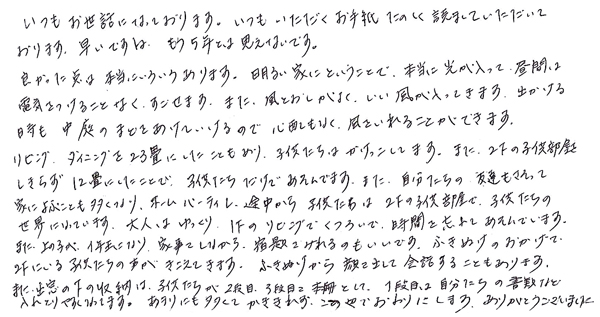 いつもお世話になっております。いつもいただくお手紙たのしく読ましていただいて
おります。早いですね、もう5年とは思えないです。
良かった点は本当にいろいろあります。明るい家にということで、本当に光が入って、昼間は
電気をつけることなく、すごせます。また、風とおしがよく、いい風が入ってきます。出かける
時も中庭のまどをあけていけるので心配もなく、風をいれることができます。
リビング、ダイニングを23畳にしたこともあり、子供たちはかけっこしてます。また、2Fの子供部屋
しきらず12畳にしたことで、子供たちだけであそんでます。また、自分たちの友達もさそって
家によぶことも多くなり、ホームパーティし、途中から子供たちは2Fの子供部屋で、子供たちの
世界になっています。大人はゆっくり、1Fのリビングでくつろいで、時間を忘れてあそんでいます。
また、上の子が、1年生になり、家事をしながら、宿題をみれるのもいいです。ふきぬけのおかげで
2Fにいる子供たちの声がきこえてきます。ふきぬけから顔を出して会話することもあります。
また、出窓の下の収納は、子供たちが2段目、3段目を本棚として、1段目は自分たちの書類など
入れてつかわれてます。あまりにも多くてかききれず、この辺でおわりにします。ありがとうございました